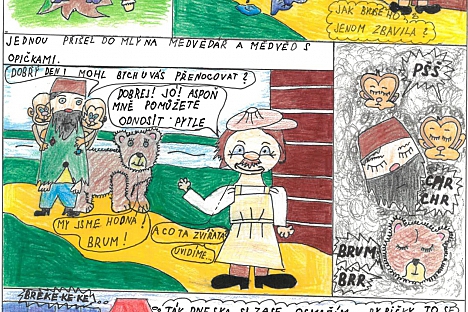 JAK BYCH HO
JENOM ZBAVILA?
JEDNOU PŘIŠEL DO MLÝNA MEDVĚDÁŘ A MEDVĚD S
OPIČKAMI.
DOBRÝ DEN! MOHL BYCH U VÁS PŘENOCOVAT?
DOBREJ! JO! ASPOŇ
MNĚ POMŮŽETE
ODNOSIT PYTLE
MY JSME HODNÁ!
BRUM!
A CO TA ZVÍŘATA
UVIDÍME...
PŠŠ
CHR
CHR
BRUM
BRR
BREKE-KE-KE...
TAK DNESKA SI ZASE OSMAŽÍM RYBIČKY TO SE